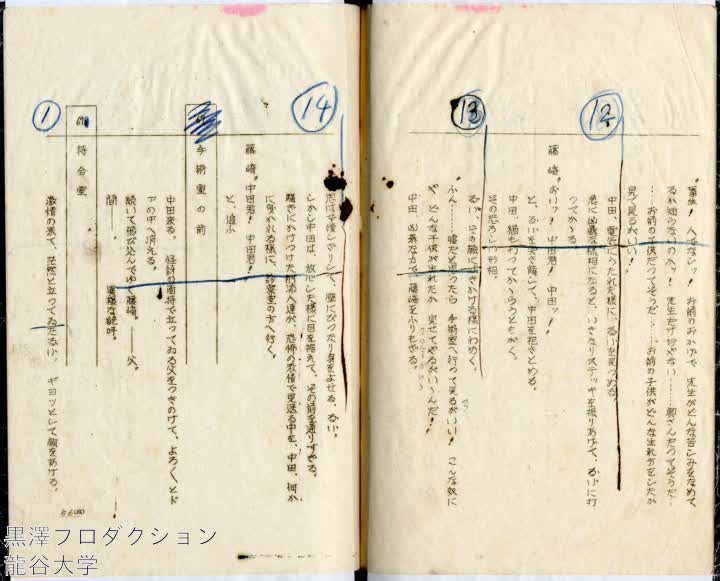 畜生! へでなしッ! お前のおかげで、先生がどんな苦しみをなめて
るか知らないのかッ! 先生だけぢゃない……奥さんだってそうだ…
…お前の子供だってそうだ……お前の子供がどんな生れ方をしたか
見て見るがいい!
中田、電気にうたれた様に、るいを見つめる。
急に凶暴な様相になると、いきなりステッキを振りあげて、るいに打
つてかゝる。
藤崎“おいッ! 中田君! 中田ッ!
と、るいを突き離して、中田を抱きとめる。
中田、猶も打ってかゝらうともがく。
その恐ろしい形相。
るい、その顔によきかける様にわめく。
ふん……嘘だと思ったら 手術室へ行って見るがいい! こんな奴に
や、どんな子供が生れたか 見せてやるがいゝんだ!
中田、凶暴な力で、藤崎をふりもぎる。
12
13
14
恐ろし後しざりして、壁にぴったり身をよせる、るい。
しかし中田は、放心した様に目を据えて、その前を通りすぎる。
騒ぎにかけつけた附添人達が、恐怖の表情で見送る中を、中田、何か
に憑かれる様に、診察室の方へ行く。
藤崎“中田君! 中田君!
と、追ふ
手術室の前
中田来る。怪訝の面持で立ってゐる父をつきのけて、よろ〱とド
アの中へ消える。
続いて飛び込んでゆく藤崎。——父。
間。
異様な絶叫。
待合室
激情の果て、茫然と立ってゐたるい。ギヨッとして顔をあげる。
1
黒澤プロダクション
龍谷大学